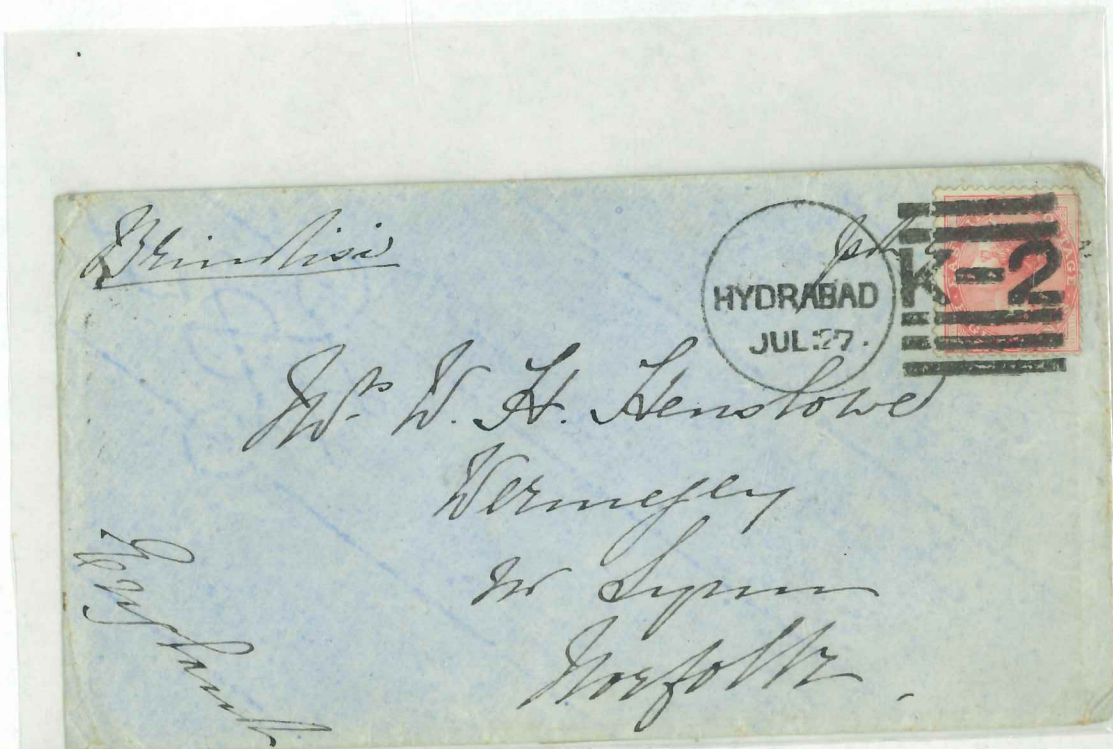 Brindisi
HYDRABAD
JUL:27.
K-2
AGE
Mrs W. H. Henslowe
Wermegey
Nr Lynn
Norfolk
England